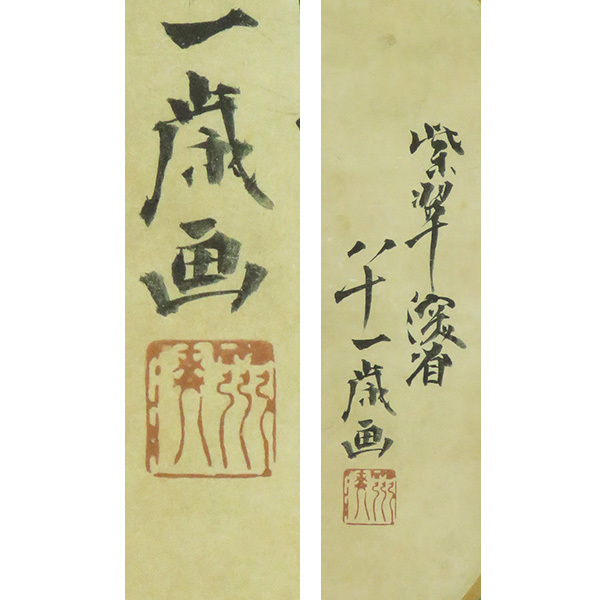 一歳画
紫翠深省
八十一歳画